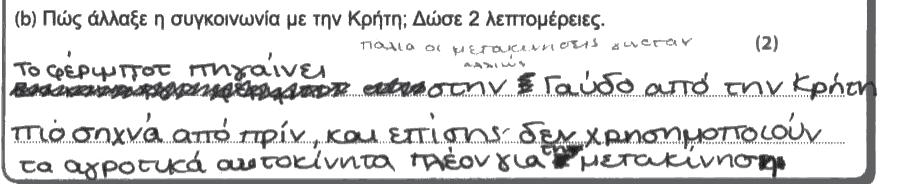 (b) Πώς άλλαξε η συγκοινωνία με την Κρήτη; Δώσε 2 λεπτομέρειες.
(2)
παλια οι μετακινησεις
Το φέριμποτ πηγαίνει
στην Γαύδο από την Κρήτη
πιό σηχνά από πρίν, και επίσης δεν χρησημοποιούν
τα αγροτικά αυτοκίνητα πλέον για την μετακίνηση